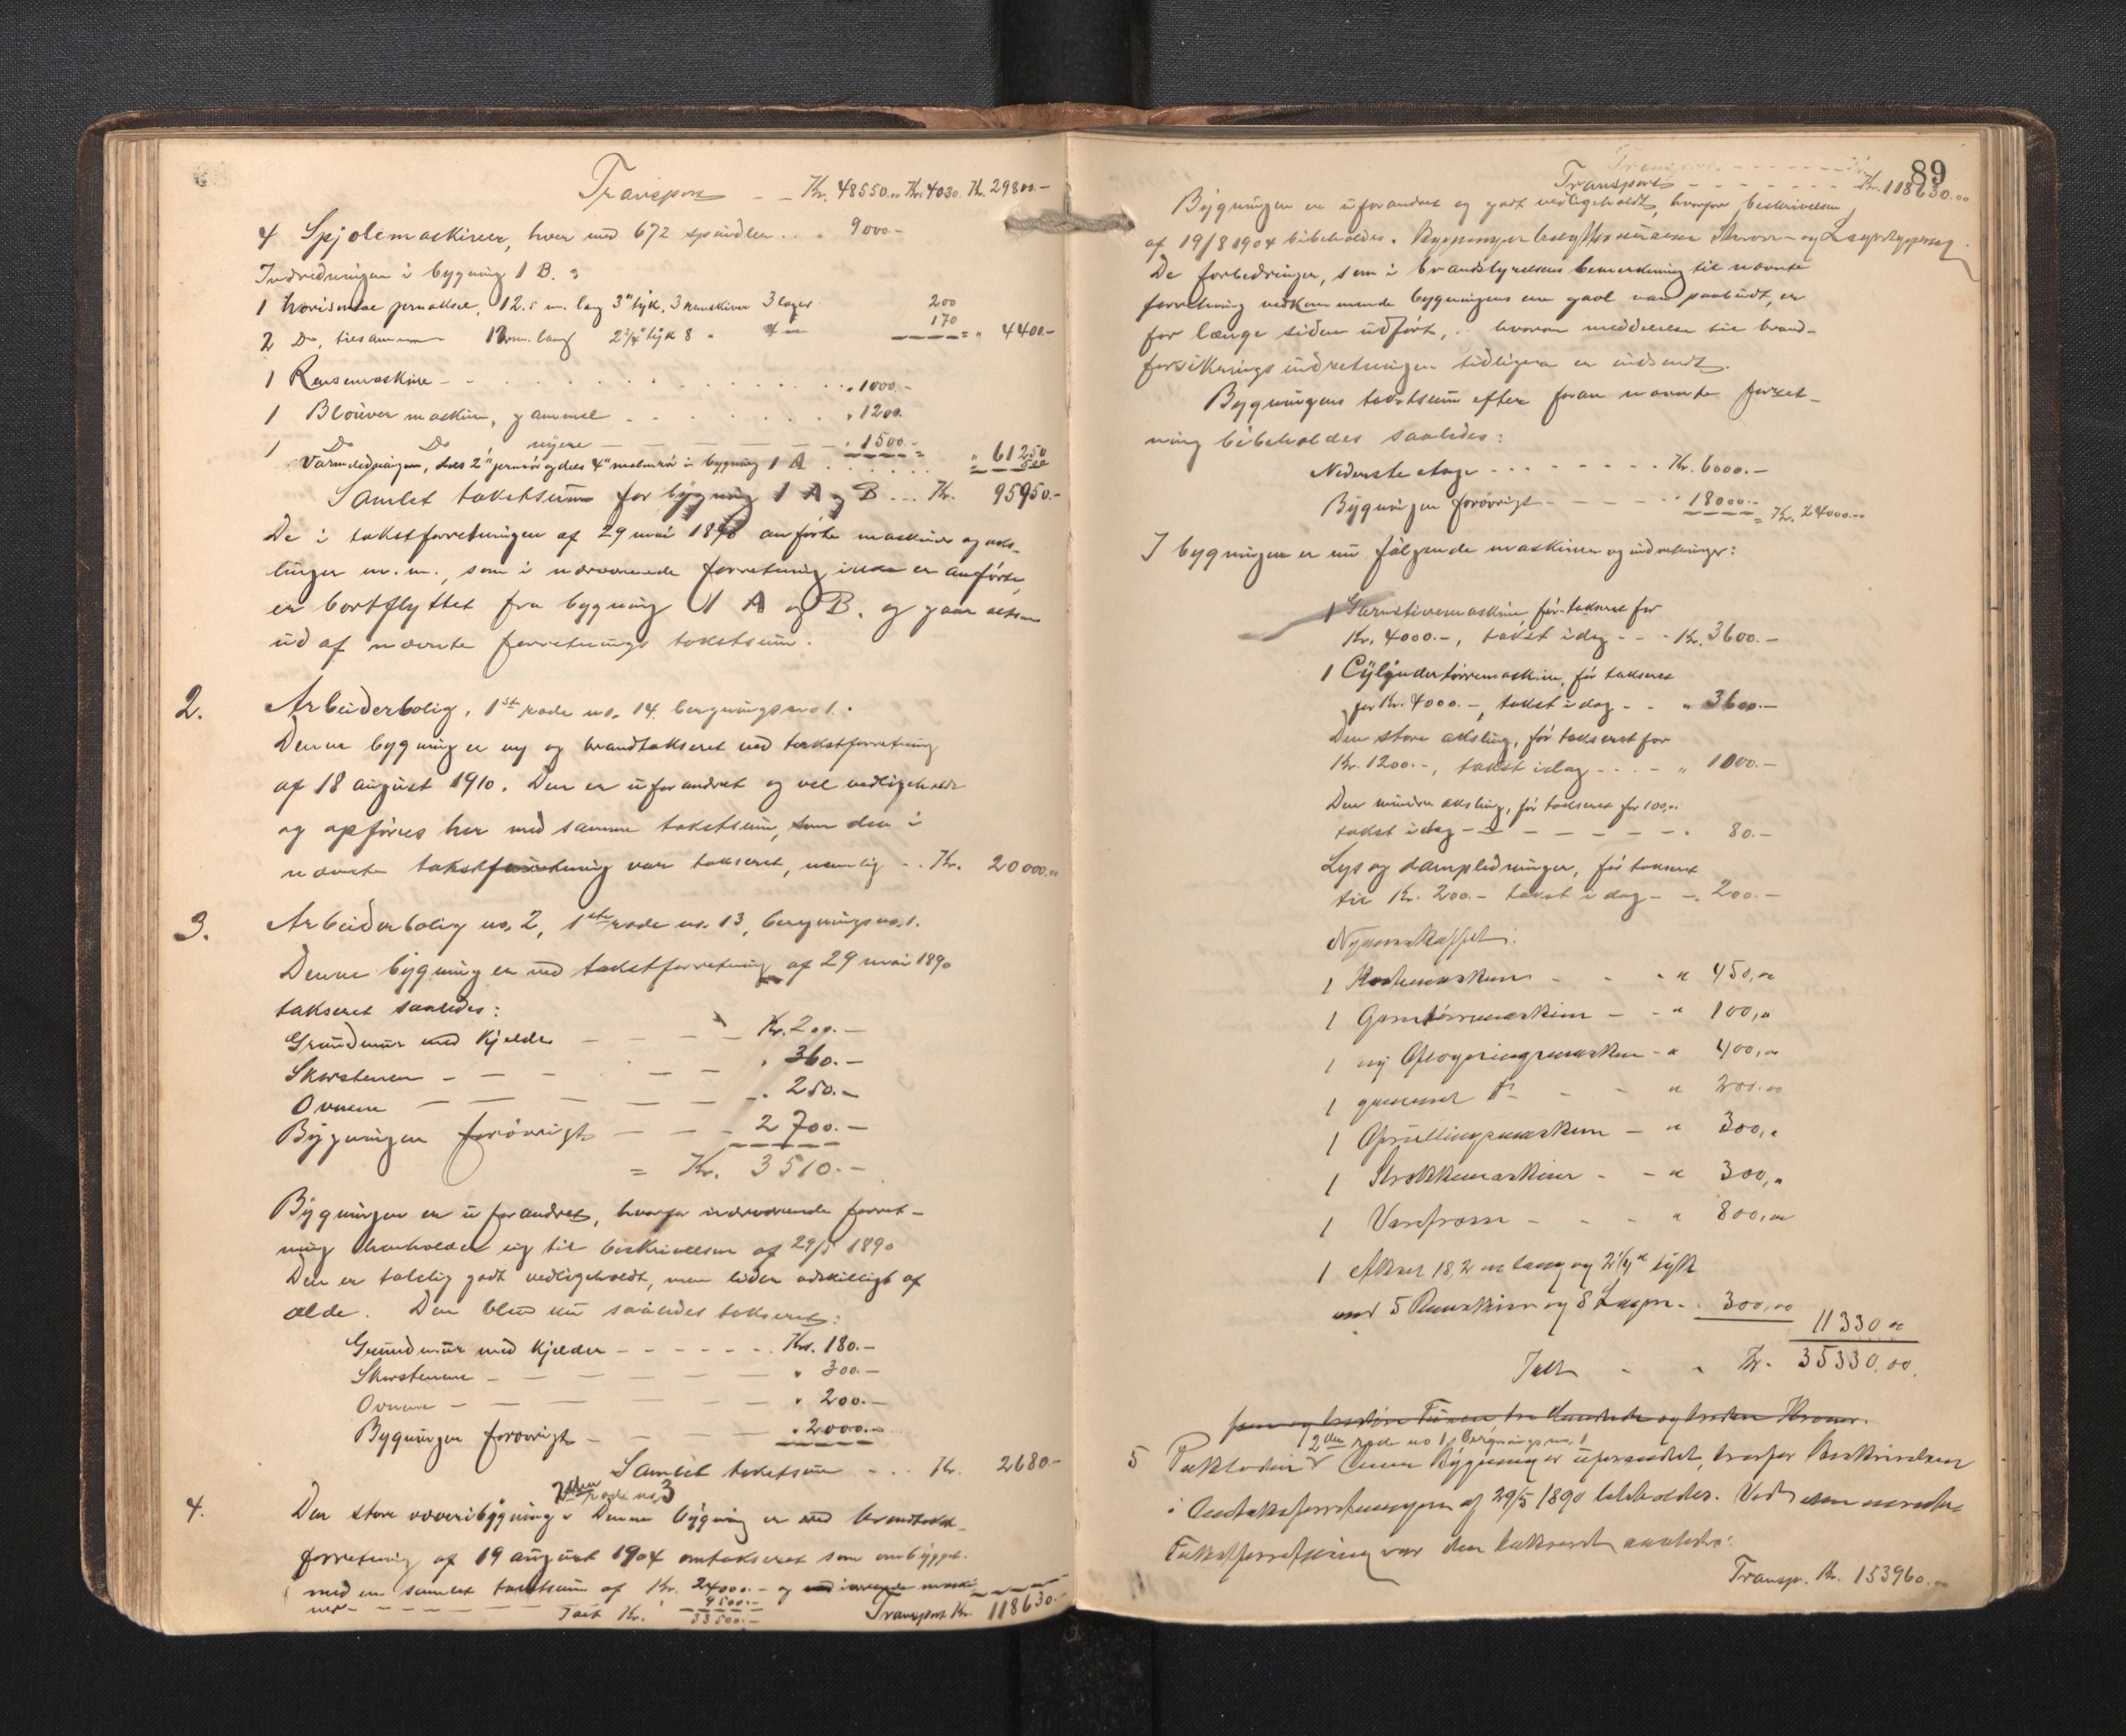 Transport - - Kr. 48550.00 Kr. 4030. Kr. 29800.-
4 Spjolemaskiner, hver med 672 spindler . . . 9000.-
Indredningen i bygning 1 B.:
1 horisontal jernaksel, 12.5 m. lang 3" tyk, 3 remskiver 3 lager 200
2 Do, tilsammen lang 2 3/4" tyk 8 " 4 " 170 = " 4400.-
1 Rensemaskine - . . . . " 1000.-
1 maskine, gammel . . . . " 1200.
1 Do Do, nyere - - - - " 1500.- = " 61250
Varmeledningen, dels 2" jernrør og dels 4" i bygning 1 A . . . .
Samlet takstsum for bygning 1 A og B . . . Kr. 95950.-
De i takstforretningen af 29 mai 1890 anførte maskiner og aks-
linger m.m., som i nærværende forretning ikke er anførte,
er bortflyttet fra bygning 1 A og B. og gaar altsaa
ud af nævnte forretnings takstsum.
2. Arbeiderbolig, 1ste rode no. 14, bergningsno 1.
Denne bygning er ny og brandtakseret ved takstforretning
af 18 august 1910. Den er uforandret og vel vedligeholdt
og opføres her med samme takstsum, som den i
nævnte takstforretning var takseret, nemlig - . Kr. 20000.00
3. Arbeiderbolig no. 2, 1ste rode no. 13, bergningsno. 1.
Denne bygning er ved takstforretning af 29 mai 1890
takseret saaledes:
Grundmur med kjelder - - - - Kr. 200.-
Skorstenen - - - - - " 360.-
Ovnene - - - - - - " 250.-
Bygningen forøvrigt - - - 2700.-
= Kr. 3510.-
Bygningen er uforandret, hvorfor nærværende forret-
ning henholder sig til beskrivelsen af 29/5 1890
Den er taalelig godt vedligeholdt, men lider adskilligt af
ælde. Den blev nu saaledes takseret:
Grundmur med kjelder - - - - - - Kr. 180.-
Skorstenene - - - - - - " 300.-
Ovnene - - - - - - " 200.-
Bygningen forøvrigt - - - - " 2000.00
Samlet takstsum - . . . Kr. 2680.-
2den rode no. 3
4. Den store væveribygning. Denne bygning er ved brandtakst-
forretning af 19 august 1904 omtakseret som ombygget.
med en samlet takstsum af Kr. 24000.- og maski-
ner - - - - - 9500.-
Ialt Kr. 33500.- Transport Kr. 118630.-
89
Transport - - - - - - - Kr. 118630.00
Bygningen er uforandret og godt vedligeholdt, hvorfor beskrivelsen
af 19/8 1904 bibeholdes.
De forbedringer, som i brandstyrelsens bemerkning til nævnte
forretning vedkommende bygningens ene gavl var paabudt, er
for længe siden udført, hvorom meddelelse til brand-
forsikringsindretningen tidligere er indsendt.
Bygningens takstsum efter foran nævnte forret-
ning bibeholdes saaledes:
Nederste etage - - - - - - - - Kr. 6000.-
Bygningen forøvrigt - - - - - 18000.- = Kr. 24000.00
I bygningen er nu følgende maskiner og indretninger:
1 maskine, før takseret for
Kr. 4000.-, takst idag - - - Kr. 3600.-
1 Cylindertørremaskine, før takseret
for Kr. 4000.-, takst idag - - " 3600.-
Den store aksling, før takseret for
Kr. 1200.-, takst idag - - . - " 1000.-
Den mindre aksling, før takseret for 100.00
takst idag - - - - - - - . 80.-
Lys og dampledninger, før takseret
til Kr. 200.- takst i dag - - . 200.-
Nyanskaffet:
1 - - - " 450,00
1 Garntørremaskine - - " 100,00
1 ny - " 400,00
1 gammel Do - - " 200.00
1 Oprullingsmaskine - " 300,00
1 Strækkemaskine - - " 300,00
1 Varepresse - - - " 800,00
1 Aksel 18,2 m lang og 2 1/4" tyk
med 5 Remskiver og 8 Lager - . 300,00 11330 00
Ialt - - Kr. 35330.00.
fem og tredive Tusen tre Hundrede og tredive Kroner.
2den rode no 1, Bergnings no. 1
5 Denne Bygning er uforandret, hvorfor Beskrivelsen
i af 29/5 1890 bibeholdes. Ved den nævnte
Takstforretning var den takseret saaledes:
Transp. Kr. 153960.00